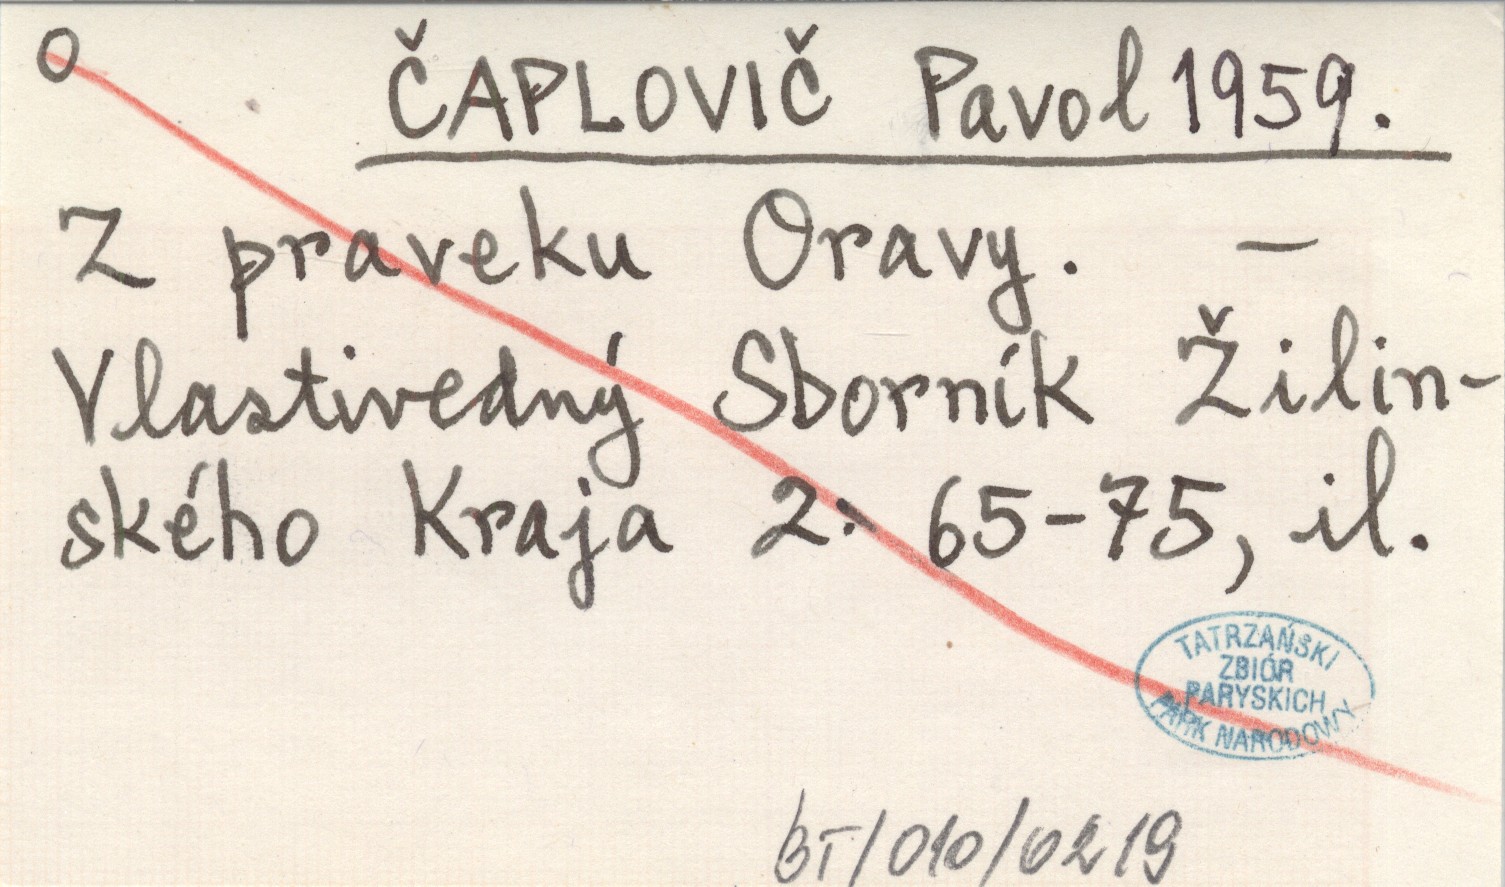 O
ČAPLOVIČ Pavol 1959.
Z praveku Oravy. —
Vlastivedný Sborník Žilin-
ského Kraja 2: 65-75, il.
TATRZAŃSKI
ZBIÓR
PARYSKICH
PARK NARODOWY
BT/010/0219